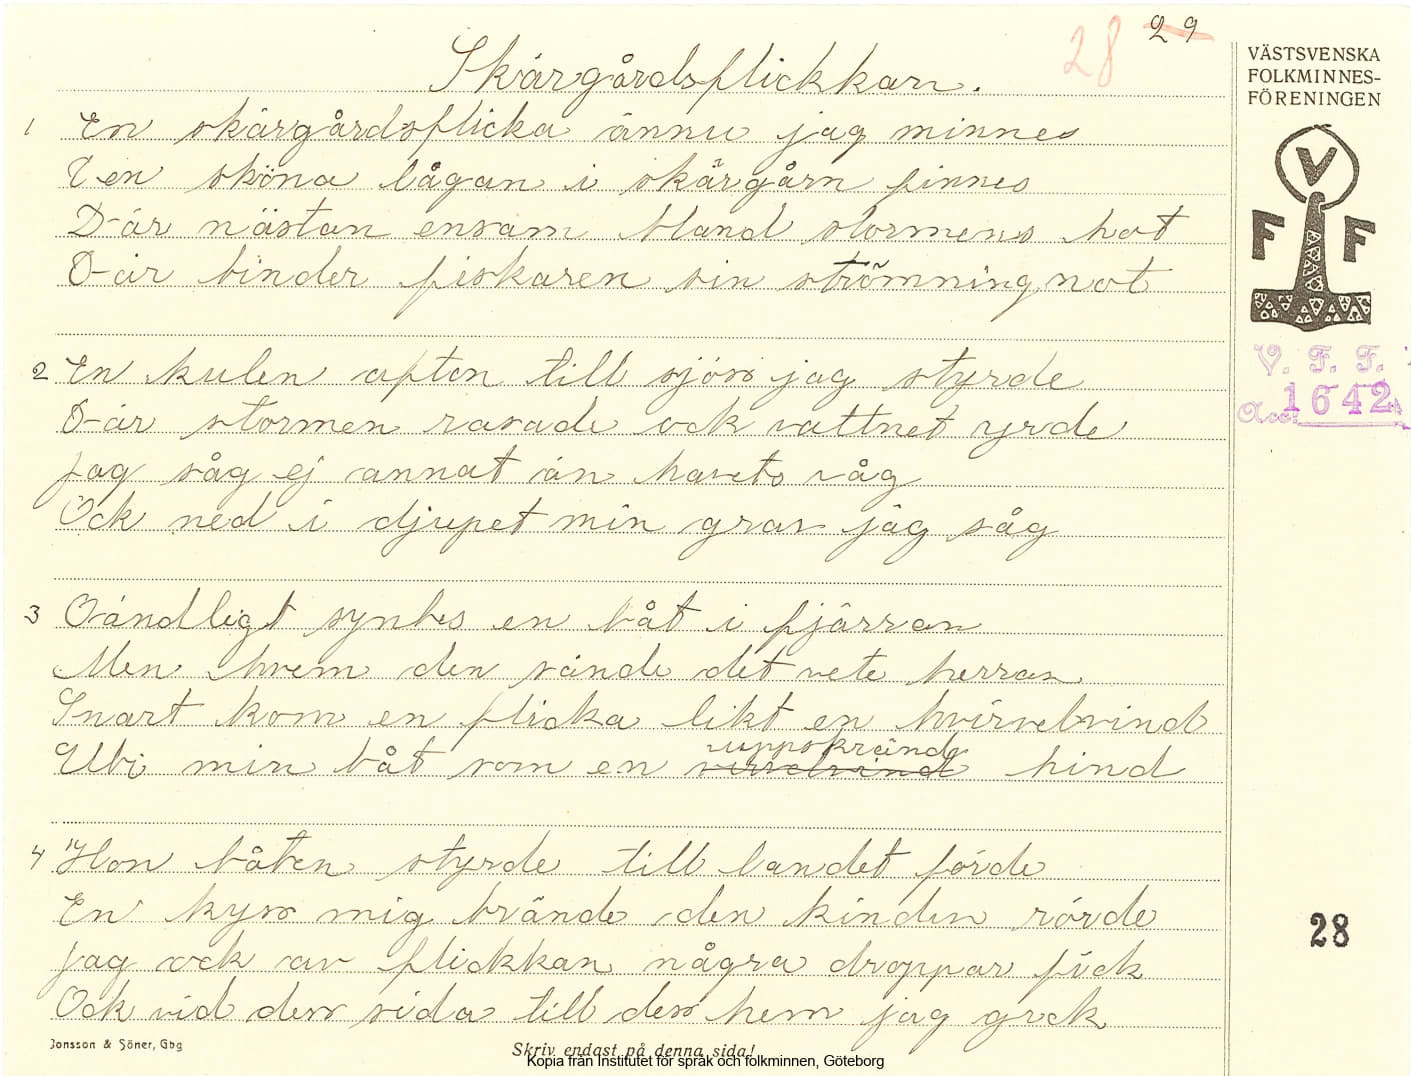 28 29
Skärgårdsflickkan.
1 En skärgårdsflicka ännu jag minnes
Den sköna lågan i skärgårn finnes
Där nästan ensam bland stormens hot
Där binder fiskaren sin strömningnot
2 En kulen afton till sjöss jag styrde
Där stormen rasade ock vattnet yrde
jag såg ej annat än havets våg
Ock ned i djupet min grav jag såg
3 Oändligt syntes en båt i fjärran
Men hvem den sände det vete herran
Snart kom en flicka likt en hvirvelvind
Uti min båt som en uppskränd hind
4 Hon båten styrde till landet förde
En kyss mig brände den kinden rörde
jag ock av flickkan några droppar fick
Ock vid dess sida till dess hem jag gick
Jonsson & Söner, Gbg
Skriv endast på denna sida!
Kopia från Institutet för språk och folkminnen, Göteborg
VÄSTSVENSKA
FOLKMINNES-
FÖRENINGEN
V
F F
V. F. F.
Acc. 1642
28